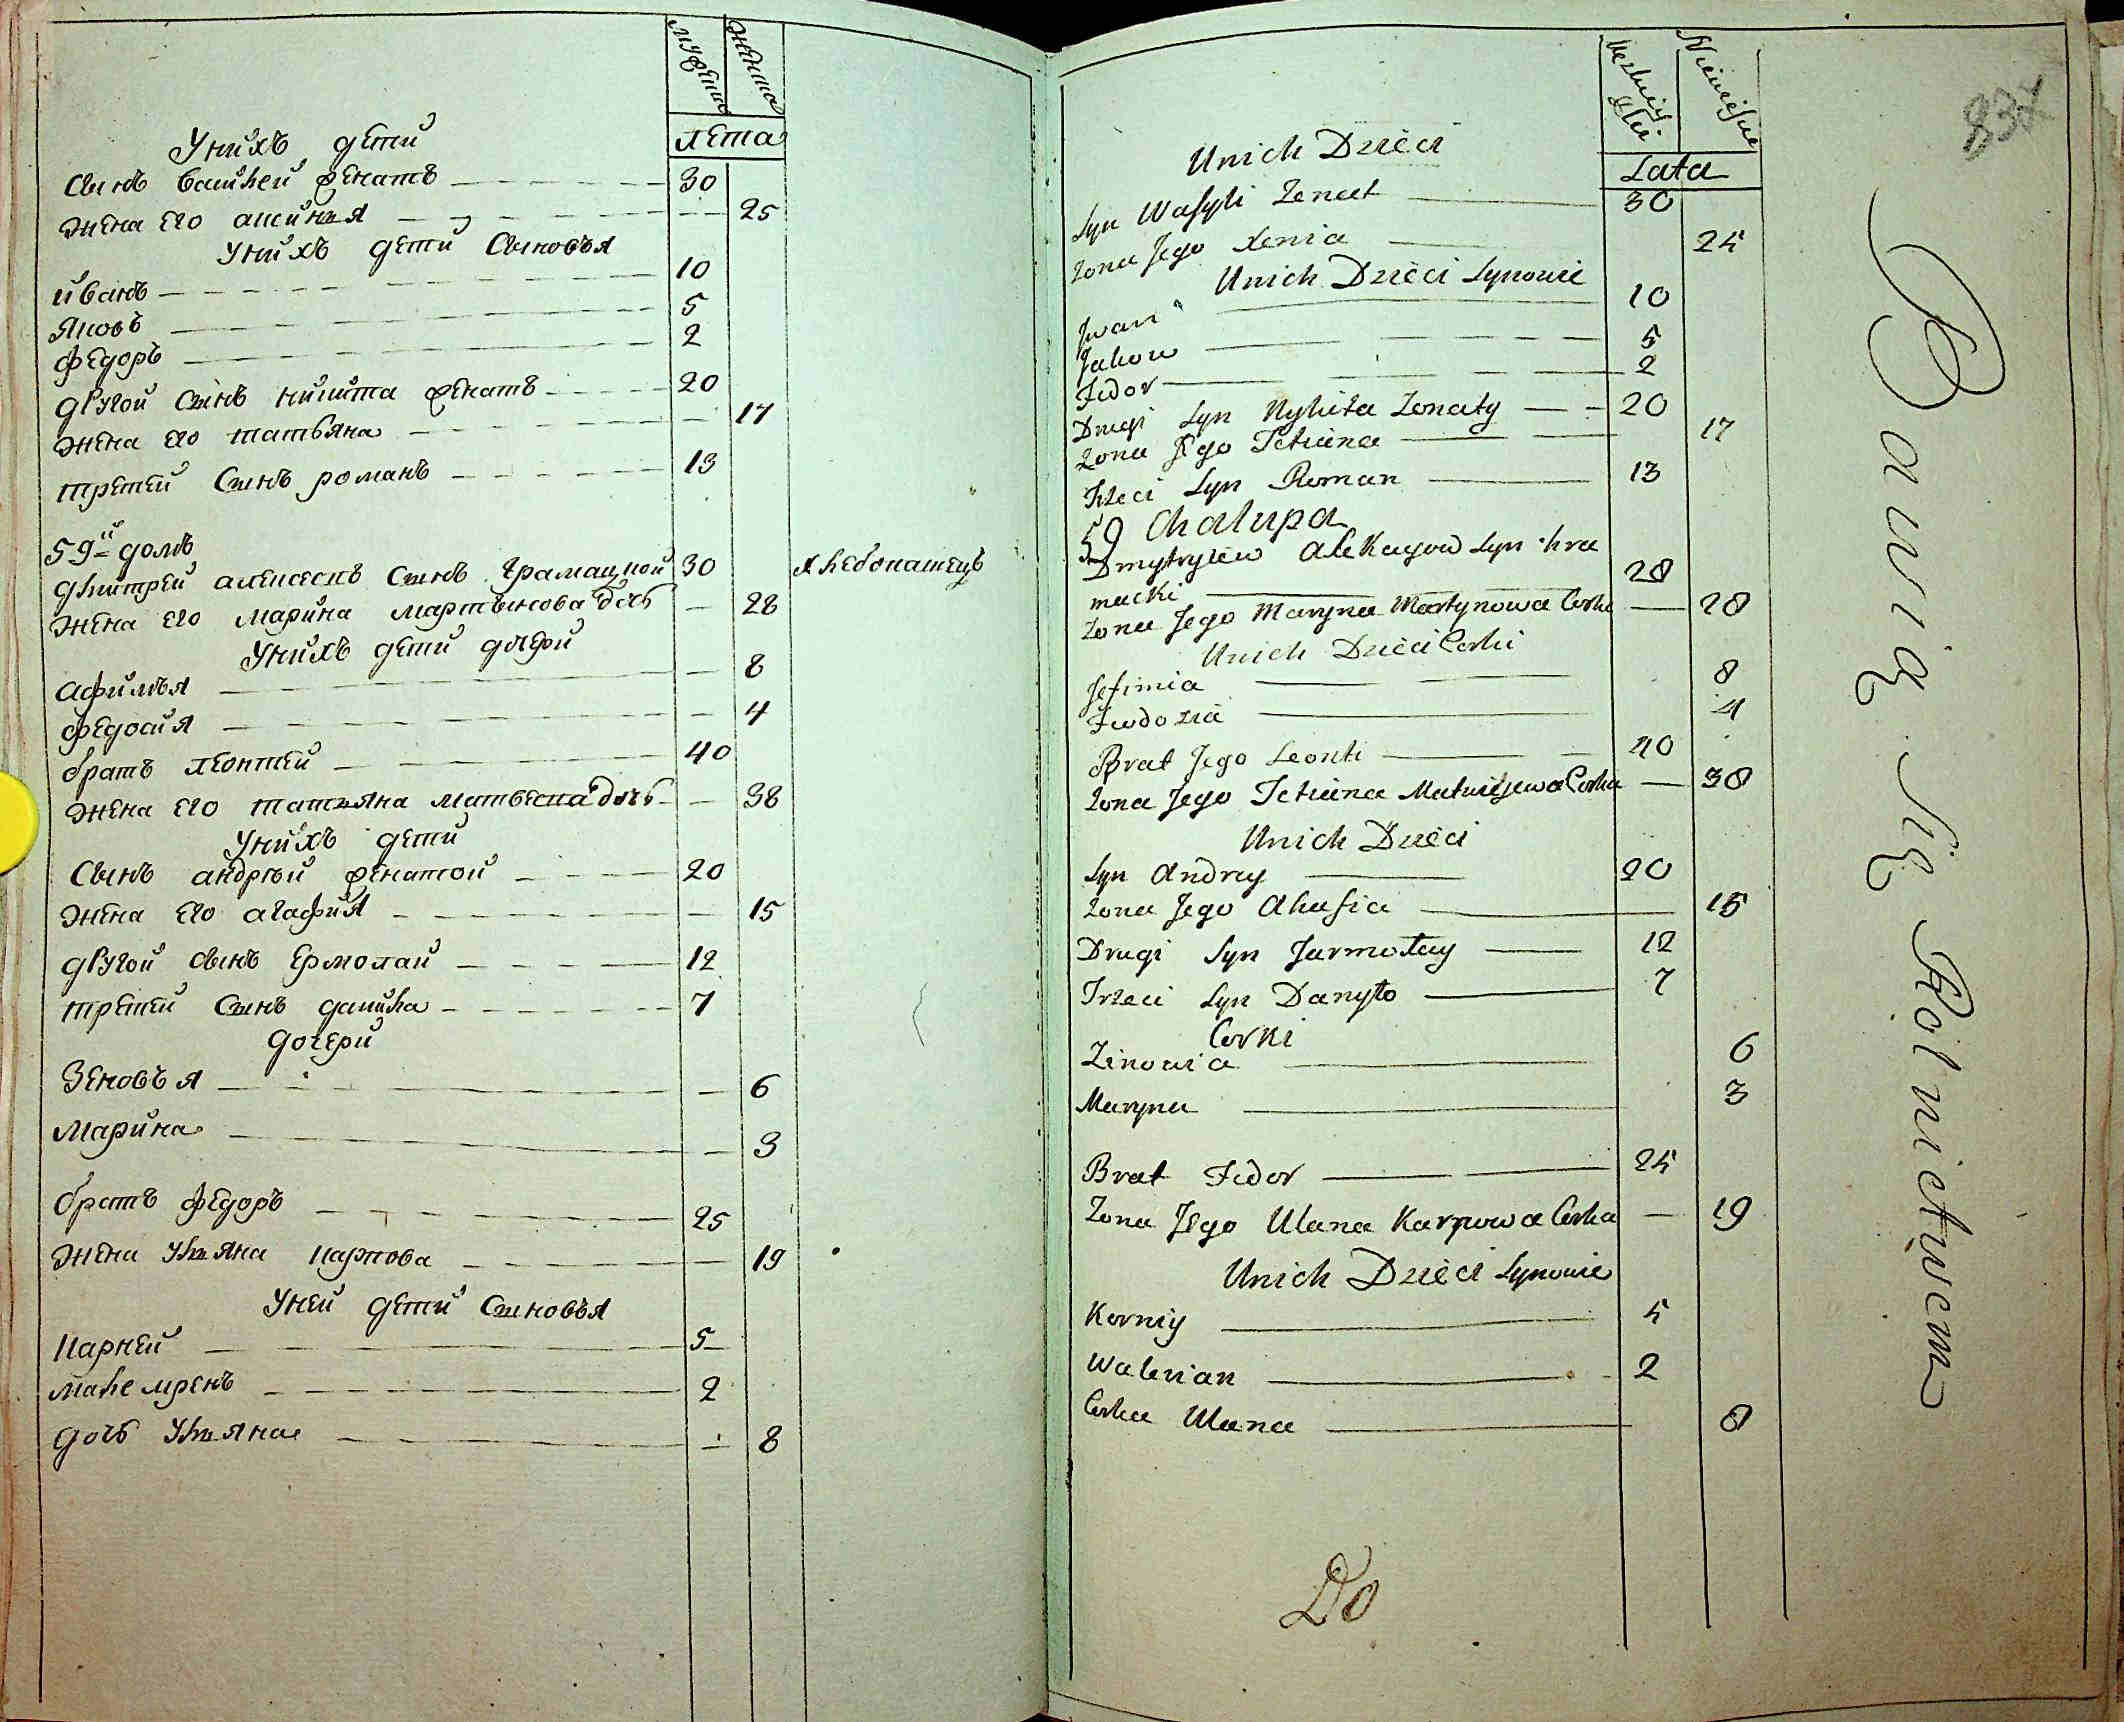 мужеска женска
лета
У нихъ дети
сынъ василей женатъ 30
жена его аксинья 25
У нихъ дети сыновья
иванъ 10
яковъ 5
федоръ 2
другой сынъ никита женатъ 20
жена его татьяна 17
третей сынъ романъ 13
59й домъ
дмитрей алексеевъ сынъ храмацкой 30 хлебопашецъ
жена его марина мартынова дочь 28
У нихъ дети дочери
афимья 8
федосия 4
братъ леонтей 40
жена его татьяна матвеева дочь 38
У нихъ дети
сынъ андрей женатой 20
жена его агафия 15
другой сынъ ермолай 12
третей сынъ данила 7
дочери
Зеновья 6
марина 3
братъ федоръ 25
жена ульяна карпова 19
У ней дети сыновья
карней 5
дочь ульяна 8
83
Lata
Unich Dzieci
Syn Wasyli Zonat 30
Zona Jego Xenia 25
Unich Dzieci Synowie
Jwan 10
Jakow 5
Fedor 2
Drugi Syn Nykita Zonaty 20
Zona Jego Tetiana 17
Trzeci Syn Roman 13
59 Chalupa
Dmytryiew Alexayow Syn hra
macki 28
Zona Jego Maryna Martynowa Corka 28
Unich Dzieci Corki
Jefimia 8
Fiedozia 4
Brat Jego Leonti 40
Zona Jego Tetiana Matwiejewa Corka 38
Unich Dzieci
Syn Andrey 20
Zona Jego Ahafia 15
Drugi Syn Jarmołay 12
Trzeci Syn Danyło 7
Corki
Zinowia 6
Maryna 3
Brat Fedor 25
Zona Jego Ulana Karpowa Corka 19
Unich Dzieci Synowie
Korniy 5
Walerian 2
Corka Ulana 8
Do
Bawią Się Rolnictwem